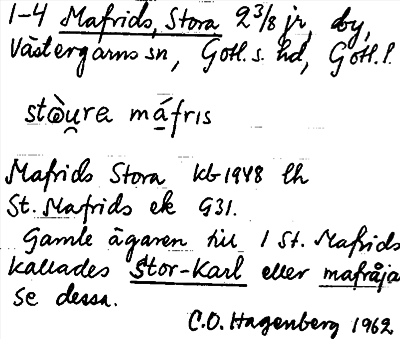 1-4 Mafrids, Stora 2 3/8 jr, by,
Västergarns sn, Gotl. s. hd, Gotl. l.
stò̀u̯re máfris
Mafrids Stora kb 1948 lh
St. Mafrids ek G31.
Gamle ägaren till 1 St. Mafrids
kallades Stor-Karl eller mafråja
se dessa.
C.O. Hagenberg 1962